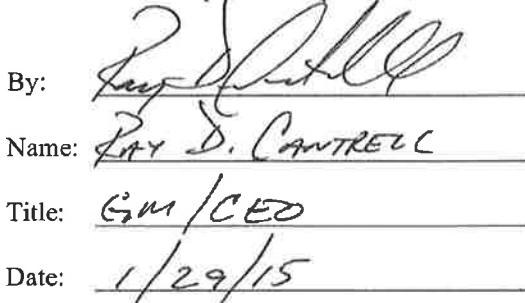 By: Ray D. Cantrell
Name: RAY D. CANTRELL
Title: GM/CEO
Date: 1/29/15